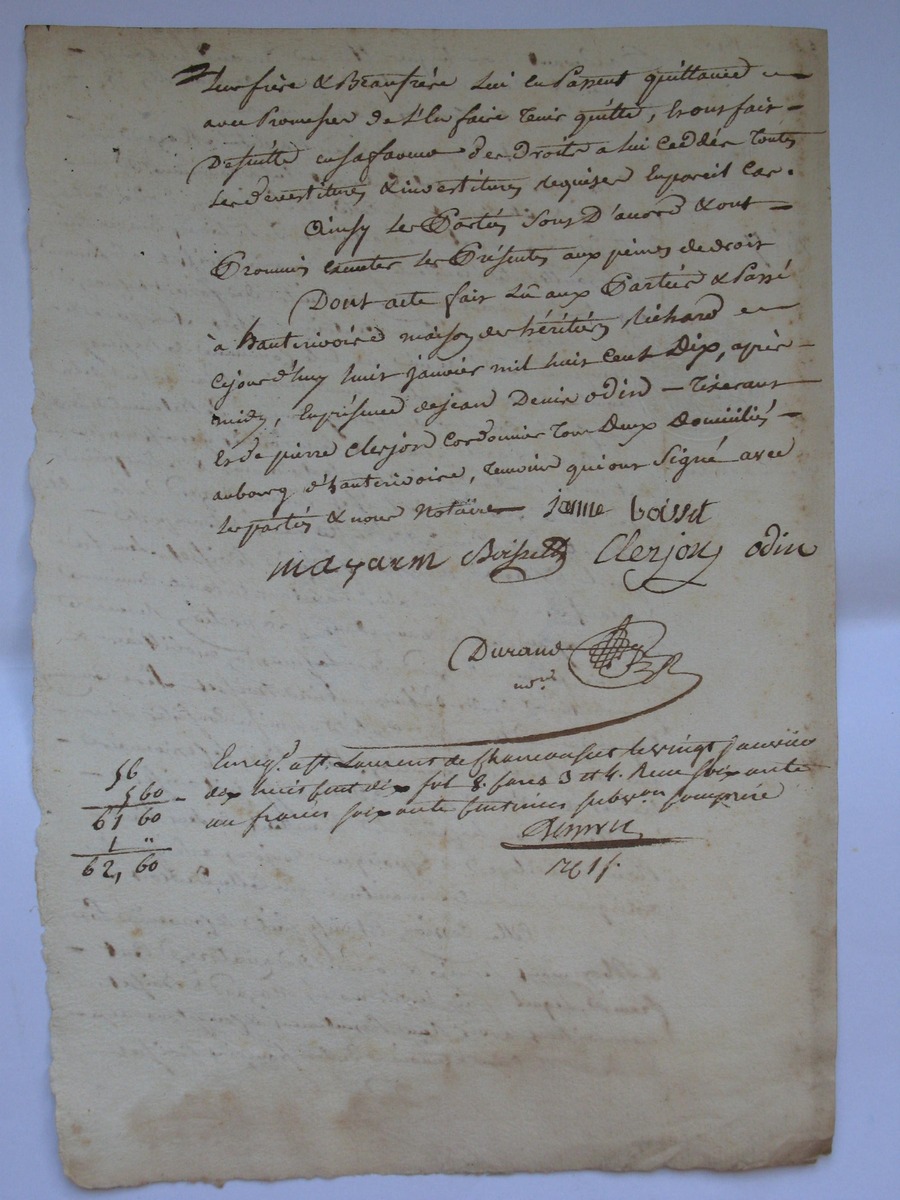 leur frère & Beaufrère Lui en Passent quittance
avec Promesse de L'En faire tenir quitte, Et ont fait
De suitte en sa faveur des Droits a lui Ceddés Toutes
les devestitures & investitures requises En pareil Cas.
Ainsy les Parties Sont D'accord & ont
Promis Exécuter les Présentes aux peines de droit
Dont acte fait Lû aux Parties & Passé
à hauterivoire maison des héritiers Richard
Cejourd'huy huit janvier mil huit Cent Dix, après
midy, En présence de jean Denis odin Tisserant
Et de pierre Clerjon Cordonnier Tous Deux Domiciliés
au bourg d'hauterivoire, temoins qui ont Signé avec
les parties & nous Notaire janne boisset
mazaum Boissett Clerjon odin
Durand
nore
Enregt. a St. Laurent de Chamousset le vingt janvier
dix huit cent dix fol 8. cases 3 et 4. Reçu soixante
un francs soixante Centimes subvon comprise
56
5 60
61 60
1 "
62, 60